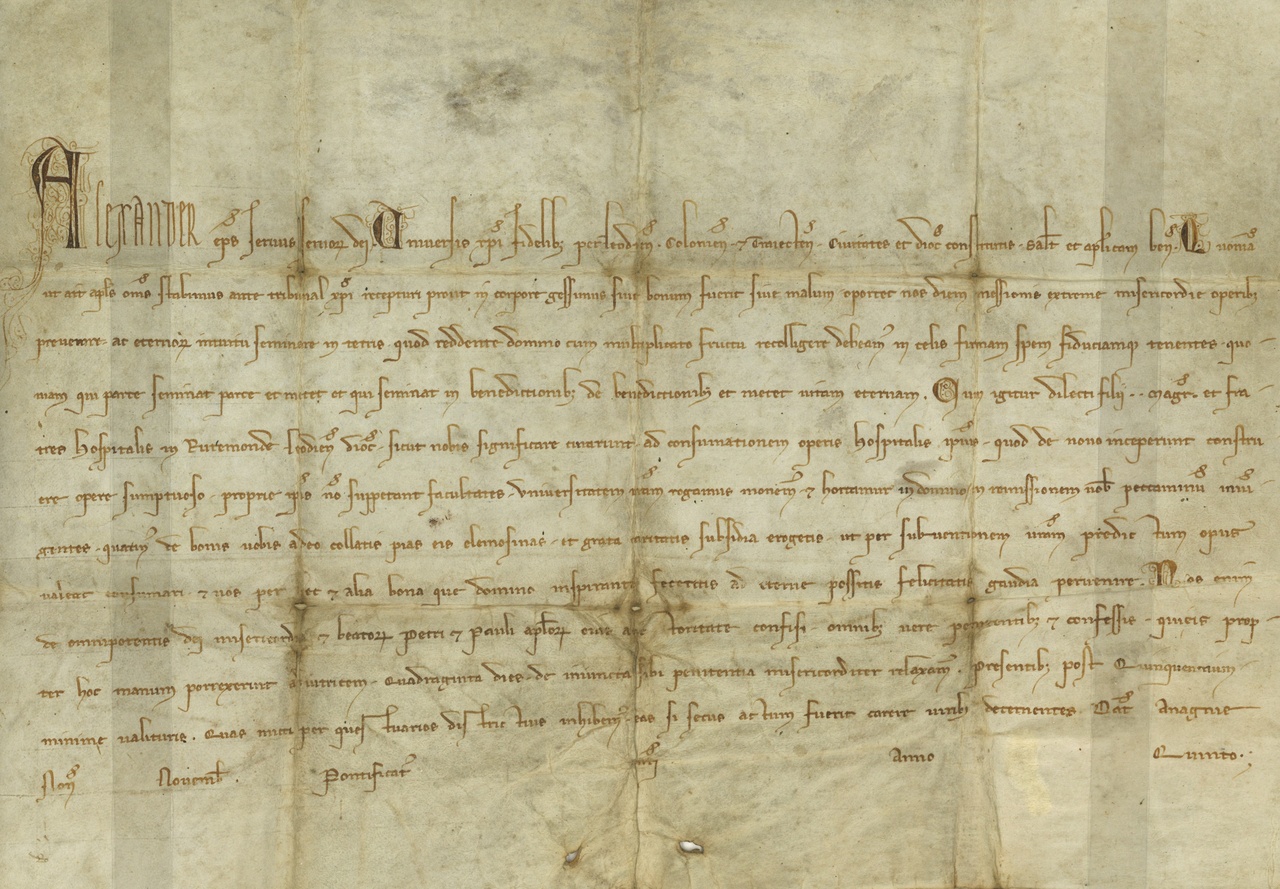 Alexander eps seruus seruorum dei. Uniuersis xpi fidelib; per leodien. Colonien. et Traiecten. Ciuitates et dioc constitutis. Salt et aplicam ben. Quoniam
ut ait apls oms stabimus ante tribunal xpi recepturi prout in corpore gessimus siue bonum fuerit siue malum. oportet nos diem messionis extreme misericordie operib;
preuenire. ac eternorum intuitu seminare in terris quod reddente domino cum multiplicato fructu recolligere debeam in celis firmam spem fiduciamq; tenentes. quo
niam qui parce seminat parce et metet et qui seminat in benedictionib; de benedictionib; et metet uitam eternam. Cum igitur dilecti filii .. magr. et fra
tres hospitalis in Ruremonde leodien dioc. sicut nobis significare curarunt. ad consumationem operis hospitalis ipius. quod de nouo inceperunt constru
ere opere sumptuoso. proprie ipis no suppetant facultates. Vniuersitatem uram rogamus monem et hortamur in domino in remissionem uob peccaminum iniu
gentes. quatin de bonis uobis a deo collatis pias eis elemosinas. et grata caritatis subsidia erogetis. ut per subuentionem uram predictum opus
ualeat consumari. et uos per hec et alia bona que domino inspirante feceritis ad eterne possitis felicitatis gaudia peruenire. Nos enim
de omnipotentis dei misericordia et beatorum Petri et Pauli aplorum eius auctoritate confisi. omnib; uere penitentib; et confessis. qui eis prop
ter hoc manum porrexerint adiutricem. Quadraginta dies. de iniuncta sibi penitentia misericorditer relaxam. Presentib; post Quinquennium
minime ualituris. Quas mitti per questuarios districtius inhibem. eas si secus actum fuerit carere uirib; decernentes. Dat Anagnie
Non Nouemb. Pontificat nri Anno Quinto.